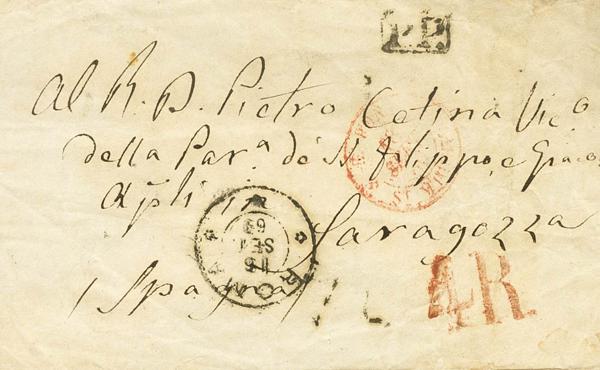 P.P.
Al R. D. Pietro Cetina Vic.o
della Par.a dè SS Filippo, e Giaco
Apli in
Saragozza
(Spagna)
ROMA
16
SET
69
4R